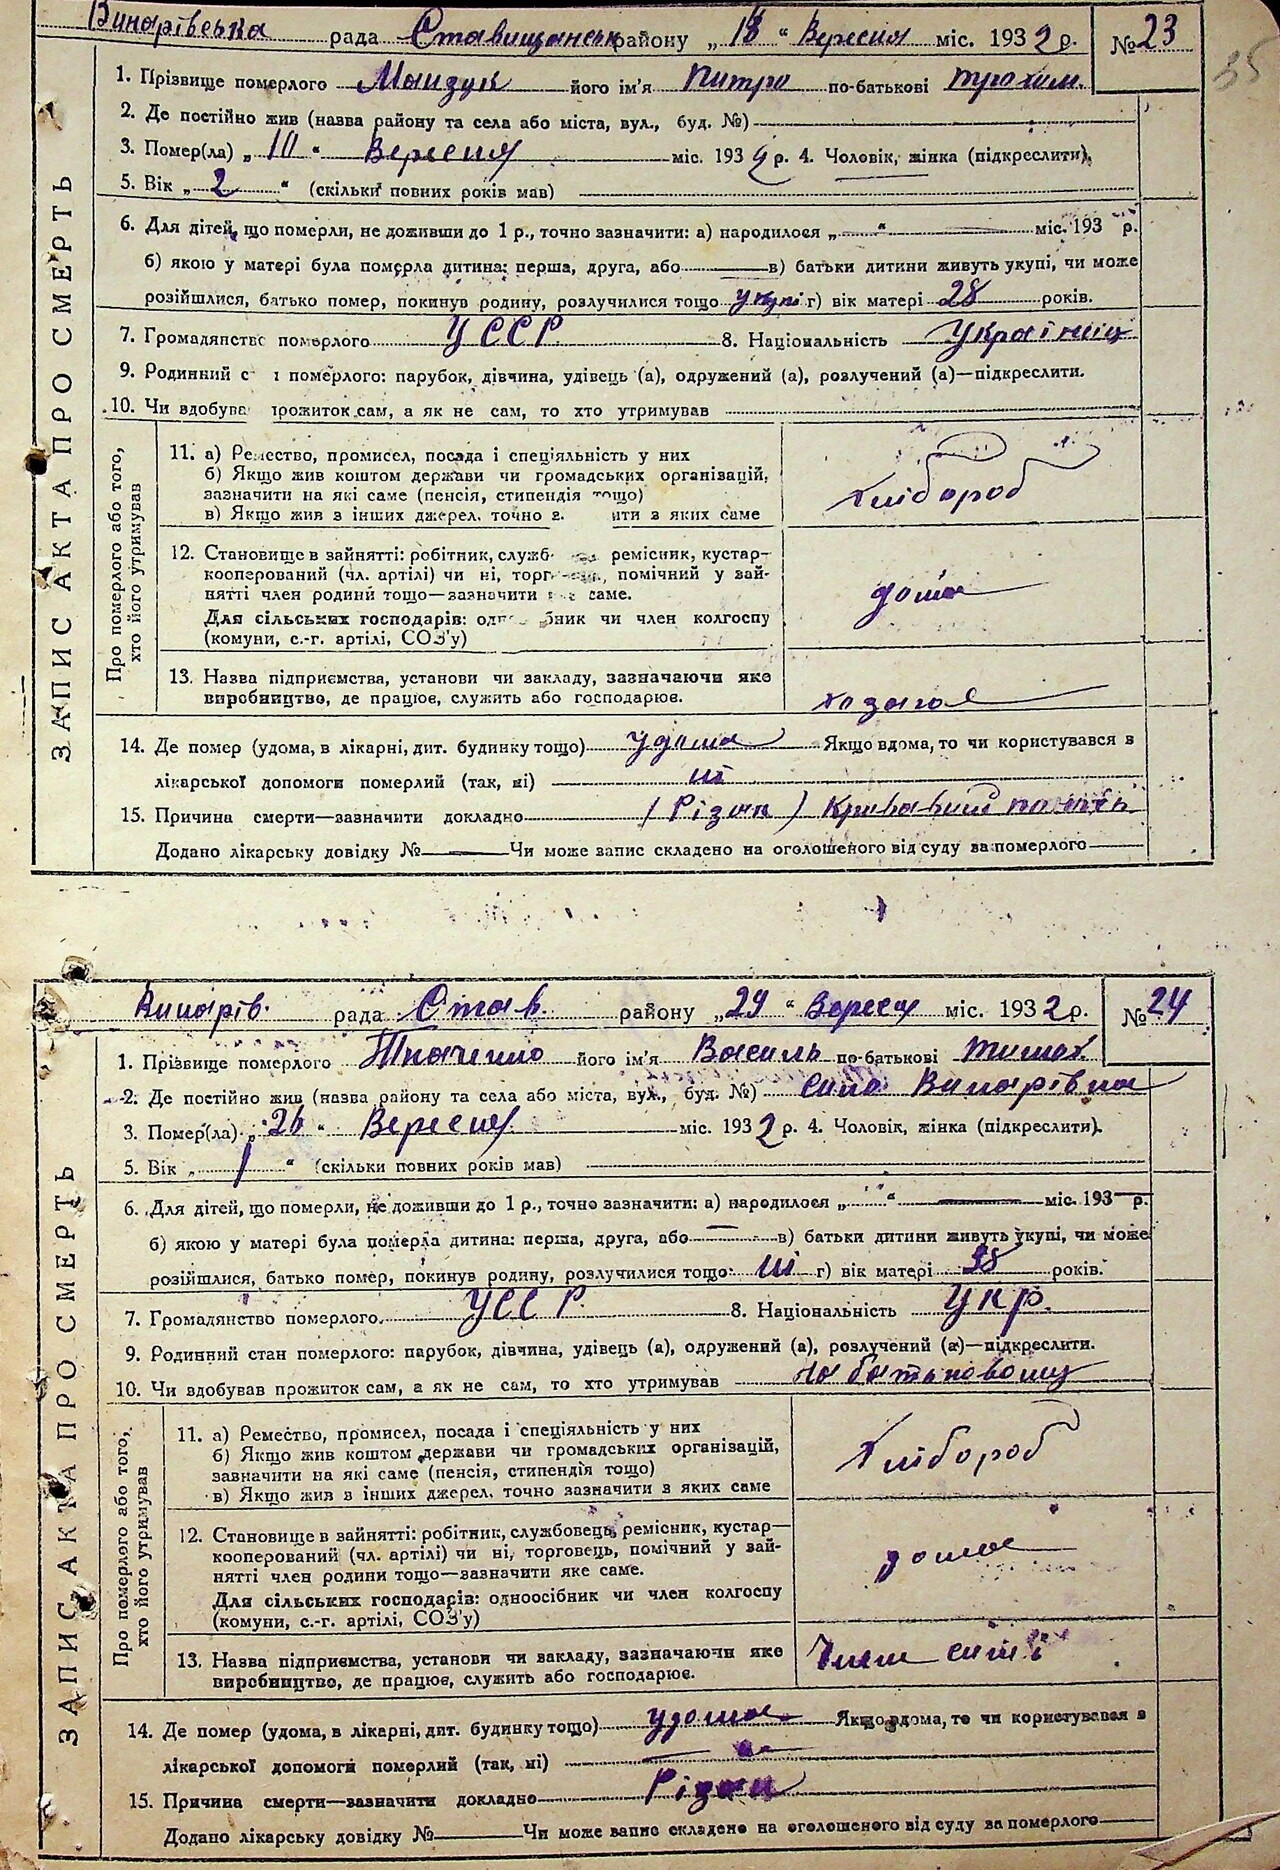 Винарівська рада Ставищанськ району „18“ Вересня міс. 1932 р. №23
35
ЗАПИС АКТА ПРО СМЕРТЬ
1. Прізвище померлого його ім'я Питро по-батькові Трохим.
2. Де постійно жив (назва району та села або міста, вул., буд. №)
3. Помер(ла) „10“ Вересня міс. 193 р. 4. Чоловік, жінка (підкреслити).
5. Вік „2“ (скільки повних років мав)
6. Для дітей, що померли, не доживши до 1 р., точно зазначити: а) народилося „ “ міс. 193 р.
б) якою у матері була померла дитина: перша, друга, або в) батьки дитини живуть укупі, чи може
розійшлися, батько помер, покинув родину, розлучилися тощо укупі г) вік матері 28 років.
7. Громадянство померлого УССР. 8. Національність Українець
9. Родинний с померлого: парубок, дівчина, удівець (а), одружений (а), розлучений (а)—підкреслити.
10. Чи здобува прожиток сам, а як не сам, то хто утримував
Про померлого або того, хто його утримував
11. а) Ремество, промисел, посада і спеціяльність у них
б) Якщо жив коштом держави чи громадських організацій,
зазначити на які саме (пенсія, стипендія тощо)
в) Якщо жив з інших джерел, точно з ити з яких саме
Хлібороб
12. Становище в зайнятті: робітник, служб ремісник, кустар-
кооперований (чл. артілі) чи ні, торг , помічний у зай-
нятті член родини тощо—зазначити саме.
Для сільських господарів: одн бник чи член колгоспу
(комуни, с.-г. артілі, СОЗ'у)
дома
13. Назва підприємства, установи чи закладу, зазначаючи яке
виробництво, де працює, служить або господарює.
14. Де помер (удома, в лікарні, дит. будинку тощо) удома Якщо вдома, то чи користувався з
лікарської допомоги померлий (так, ні) ні
15. Причина смерти—зазначити докладно (Різан) Кривавий понос
Додано лікарську довідку № Чи може запис складено на оголошеного від суду за померлого
Винарів. рада Став. району „29“ Вересня міс. 1932 р. №24
ЗАПИС АКТА ПРО СМЕРТЬ
1. Прізвище померлого Ткаченко його ім'я Василь по-батькові Тимох.
2. Де постійно жив (назва району та села або міста, вул., буд. №) село Винарівка
3. Помер(ла) „26“ Вересня міс. 1932 р. 4. Чоловік, жінка (підкреслити).
5. Вік „1“ (скільки повних років мав)
6. Для дітей, що померли, не доживши до 1 р., точно зазначити: а) народилося „ “ міс. 193 р.
б) якою у матері була померла дитина: перша, друга, або в) батьки дитини живуть укупі, чи може
розійшлися, батько помер, покинув родину, розлучилися тощо: ні г) вік матері 38 років.
7. Громадянство померлого УССР. 8. Національність Укр.
9. Родинний стан померлого: парубок, дівчина, удівець (а), одружений (а), розлучений (а)—підкреслити.
10. Чи здобував прожиток сам, а як не сам, то хто утримував
Про померлого або того, хто його утримував
11. а) Ремество, промисел, посада і спеціяльність у них
б) Якщо жив коштом держави чи громадських організацій,
зазначити на які саме (пенсія, стипендія тощо)
в) Якщо жив з інших джерел, точно зазначити з яких саме
Хлібороб
12. Становище в зайнятті: робітник, службовець, ремісник, кустар—
кооперований (чл. артілі) чи ні, торговець, помічний у зай-
нятті член родини тощо—зазначити яке саме.
Для сільських господарів: одноосібник чи член колгоспу
(комуни, с.-г. артілі, СОЗ'у)
дома
13. Назва підприємства, установи чи закладу, зазначаючи яке
виробництво, де працює, служить або господарює.
Член
14. Де помер (удома, в лікарні, дит. будинку тощо) удома Якщо вдома, то чи користувався з
лікарської допомоги померлий (так, ні)
15. Причина смерти—зазначити докладно Різан
Додано лікарську довідку № Чи може запис складено на оголошеного від суду за померлого